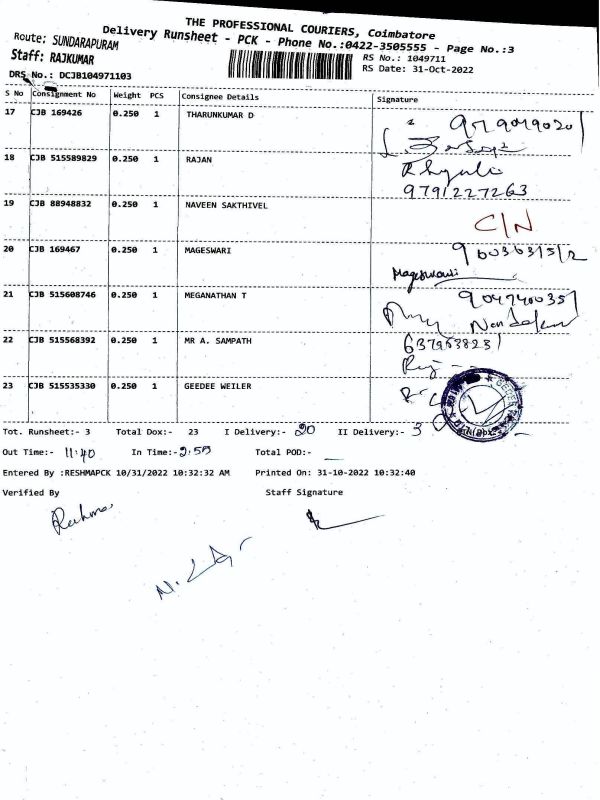 THE PROFESSIONAL COURIERS, Coimbatore
Delivery Runsheet - PCK - Phone No.:0422-3505555 - Page No.:3
Route: SUNDARAPURAM
Staff: RAJKUMAR
RS No.: 1049711
RS Date: 31-Oct-2022
DRS No.: DCJB104971103
S No Consignment No Weight PCS Consignee Details Signature
17 CJB 169426 0.250 1 THARUNKUMAR D
18 CJB 515589829 0.250 1 RAJAN
9791227263
19 CJB 88948832 0.250 1 NAVEEN SAKTHIVEL
C/N
20 CJB 169467 0.250 1 MAGESWARI
Mageswari
21 CJB 515608746 0.250 1 MEGANATHAN T
22 CJB 515568392 0.250 1 MR A. SAMPATH
23 CJB 515535330 0.250 1 GEEDEE WEILER
Tot. Runsheet:- 3 Total Dox:- 23 I Delivery:- 20 II Delivery:- 3
Out Time:- 11:40 In Time:- 2:55 Total POD:-
Entered By :RESHMAPCK 10/31/2022 10:32:32 AM Printed On: 31-10-2022 10:32:40
Verified By Staff Signature